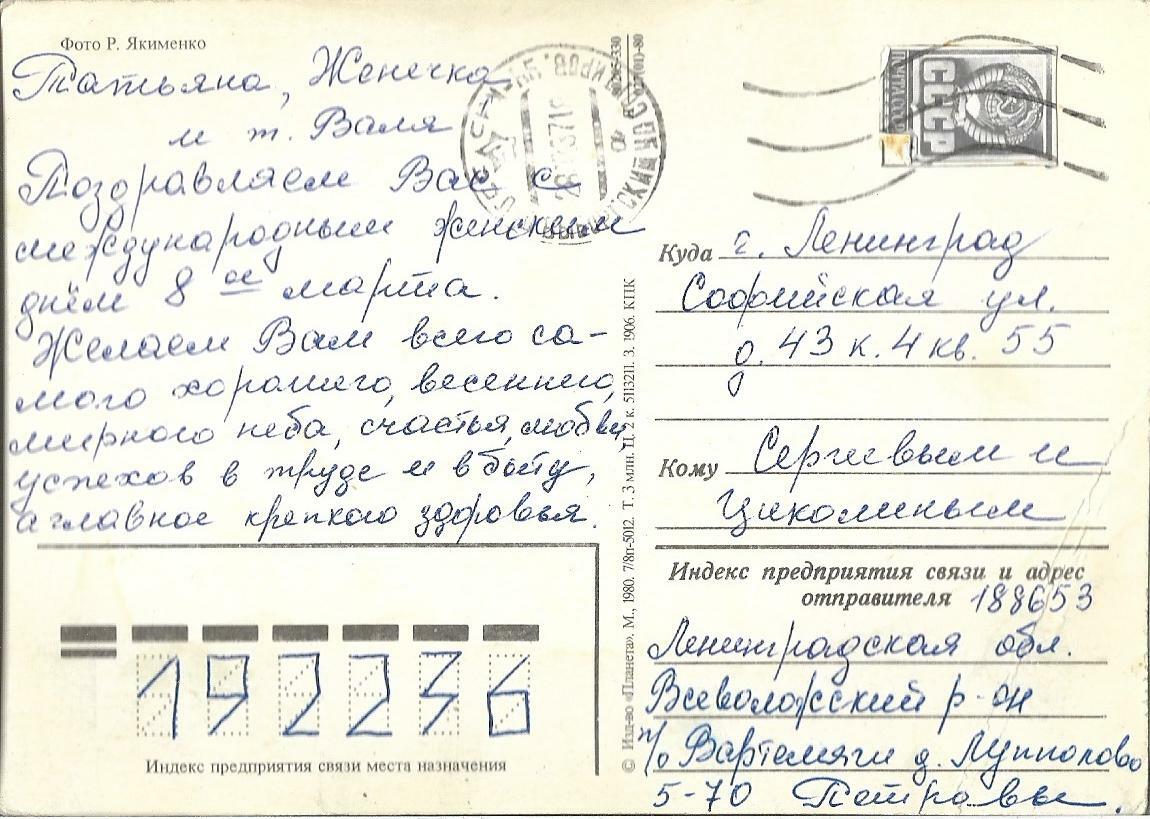 Фото Р. Якименко
Татьяна, Женечка
и т. Валя
Поздравляем Вас с
международным женским
днём 8 м марта.
Желаем Вам всего са-
мого хорошего, весеннего,
мирного неба, счастья, любви,
успехов в труде и в быту,
а главное крепкого здоровья.
192236
Индекс предприятия связи места назначения
© Изд-во «Планета». М., 1980. 7/8п-5012. Т. 3 млн. Ц. 2 к. 5113211. З. 1906. КПК
ПОЧТА
СССР
Куда г. Ленинград
Софийская ул.
д. 43 к. 4 кв. 55
Кому Сергеевым и
Циколиным
Индекс предприятия связи и адрес
отправителя 188653
Ленинградская обл.
Всеволожский р-он
п/о Вартемяги д. Лупполово
5-70 Петровы.